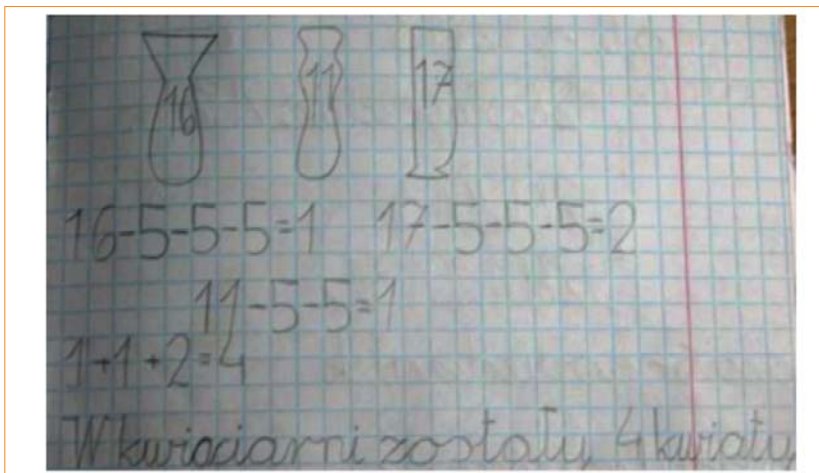 16 11 17
16-5-5-5=1 17-5-5-5=2
11-5-5=1
1+1+2=4
W kwiaciarni zostały 4 kwiaty